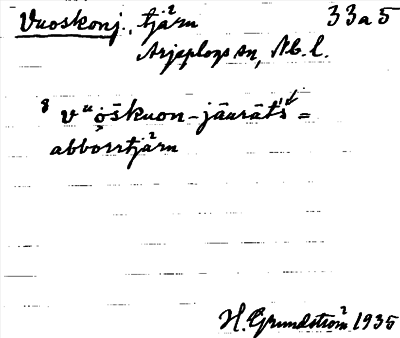 Vuoskonj., tjärn 33a5
Arjeplogs sn, Pi. l.
8 vuȯ̬škuon-jāurāts =
abborrtjärn
H. Grundström 1935